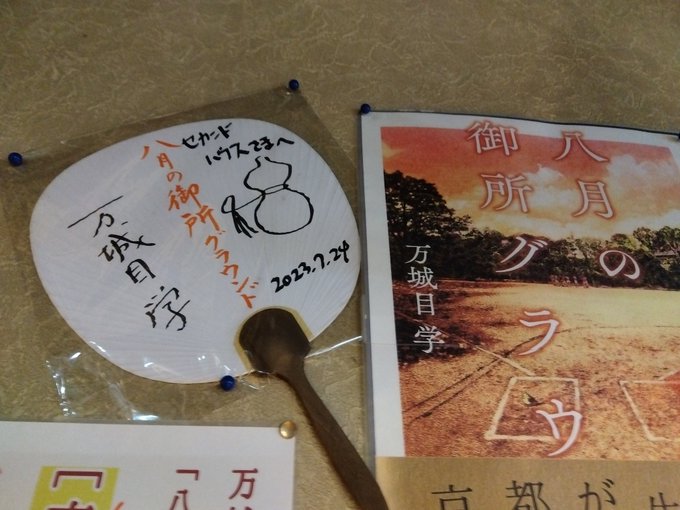 セカンド
ハウスさまへ
八月の御所グラウンド
万城目学
2023.7.24
八月の
御所グラウ
万城目学
京都が
万
「八